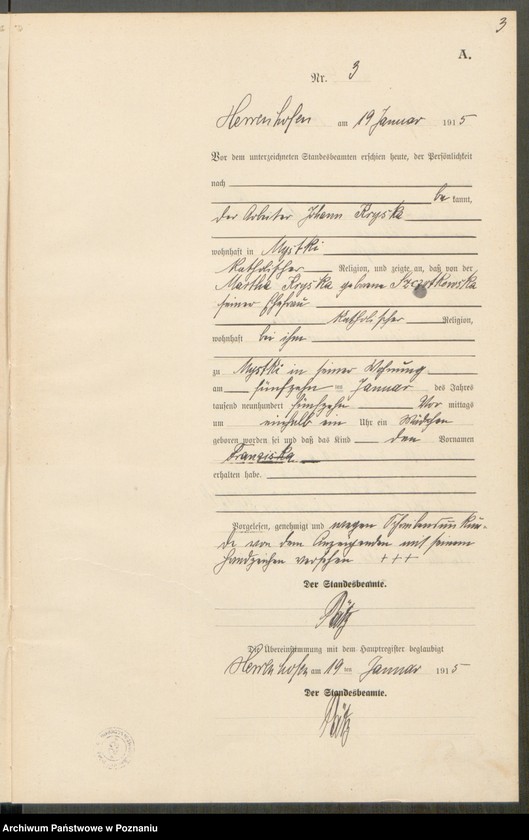 3
A.
Nr. 3
Herrenhofen am 19 Januar 1915
Vor dem unterzeichneten Standesbeamten erschien heute, der Persönlichkeit
nach
be kannt,
der Arbeiter Johann Kryska
wohnhaft in Mystki
katholischer Religion, und zeigte an, daß von der
Martha Kryska geborene Szczotkowska
seiner Ehefrau
katholischer Religion,
wohnhaft bei ihm
zu Mystki in seiner Wohnung
am fünfzehn ten Januar des Jahres
tausend neunhundert fünfzehn Vor mittags
um einhalb ein Uhr ein Mädchen
geboren worden sei und daß das Kind den Vornamen
Franziska
erhalten habe.
Vorgelesen, genehmigt und wegen Schreibensunkun-
de von dem Anzeigenden mit seinem
Handzeichen versehen +++
Der Standesbeamte.
Die Übereinstimmung mit dem Hauptregister beglaubigt
Herrenhofen am 19 ten Januar 1915
Der Standesbeamte.
Archiwum Państwowe w Poznaniu